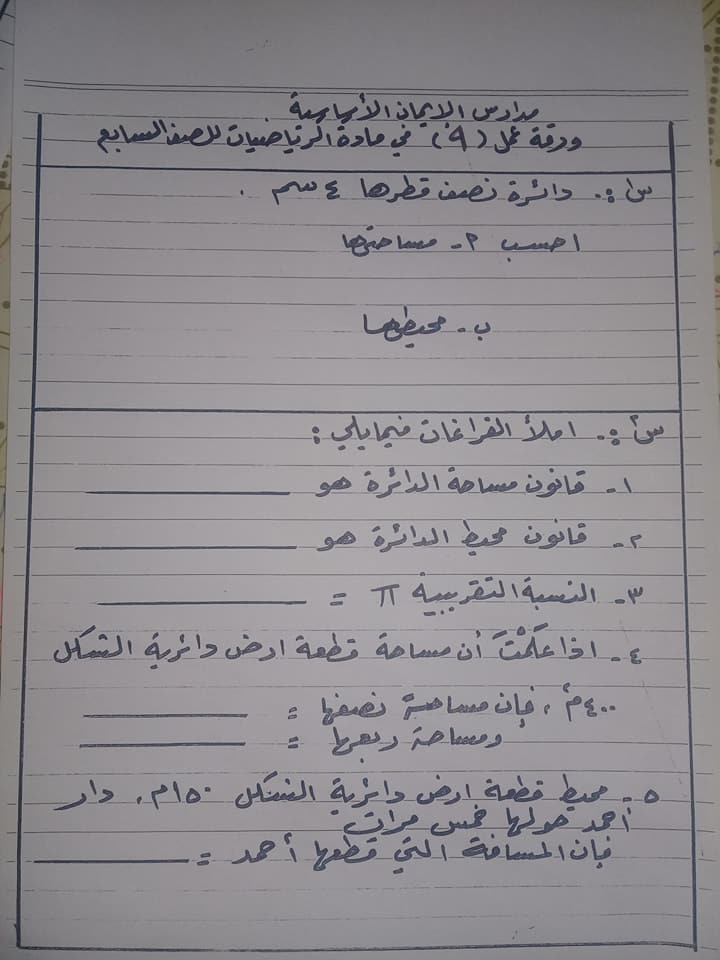 مدارس الإيمان الأساسية
ورقة عمل (٩) في مادة الرياضيات للصف السابع
س١: دائرة نصف قطرها ٤ سم .
احسب ٢- مساحتها
ب- محيطها
س٢: املأ الفراغات فيما يلي :
١- قانون مساحة الدائرة هو
٢- قانون محيط الدائرة هو
٣- النسبة التقريبية π =
٤- اذا عَلِمْتَ أن مساحة قطعة ارض دائرية الشكل
٤٠٠م٢ ، فإن مساحة نصفها =
ومساحة ربعها =
٥- محيط قطعة ارض دائرية الشكل ١٥٠م، دار
أحمد حولها خمس مرات
فإن المسافة التي قطعها أحمد =